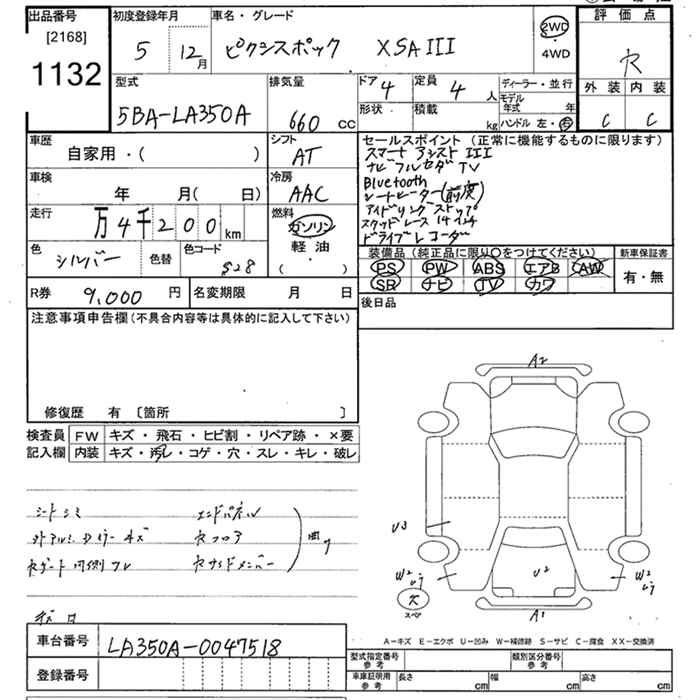 出品番号
[2168]
1132
初度登録年月
5 12月
車名・グレード
ピクシスポック XSAIII
2WD
・
4WD
評価点
R
外装 内装
C C
型式
5BA-LA350A
排気量
660 cc
ドア 4
定員 4 人
ディーラー・並行
形状
積載 kg
モデル年式 年
ハンドル 左・右
車歴
自家用・( )
シフト
AT
セールスポイント (正常に機能するものに限ります)
スマートアシスト III
ナビ フルセグTV
Bluetooth
シートヒーター(前席)
アイドリングストップ
スタッドレス 14インチ
ドライブレコーダ
車検
年 月( 日)
冷房
AAC
走行
万4千200km
燃料
ガソリン
軽油・
( )
色
シルバー
色替
色コード
S28
装備品 (純正品に限り○をつけてください)
PS PW ABS エアB AW
SR ナビ TV カワ
新車保証書
有・無
R券 9,000 円
名変期限 月 日
後日品
注意事項申告欄(不具合内容等は具体的に記入して下さい)
修復歴 有 〔箇所 〕
検査員
記入欄
FW キズ・飛石・ヒビ割・リペア跡・×要
内装 キズ・汚レ・コゲ・穴・スレ・キレ・破レ
シートシミ
エンドパネル
フロア
サイドメンバー
A2
U3
W2
U2
W2
スペア
A1
A-キズ E-エクボ U-凹み W-補修跡 S-サビ C-腐食 XX-交換済
車台番号 LA350A-0047518
登録番号
型式指定番号
参考
類別区分番号
参考
車庫証明用
参考
長さ cm 幅 cm 高さ cm